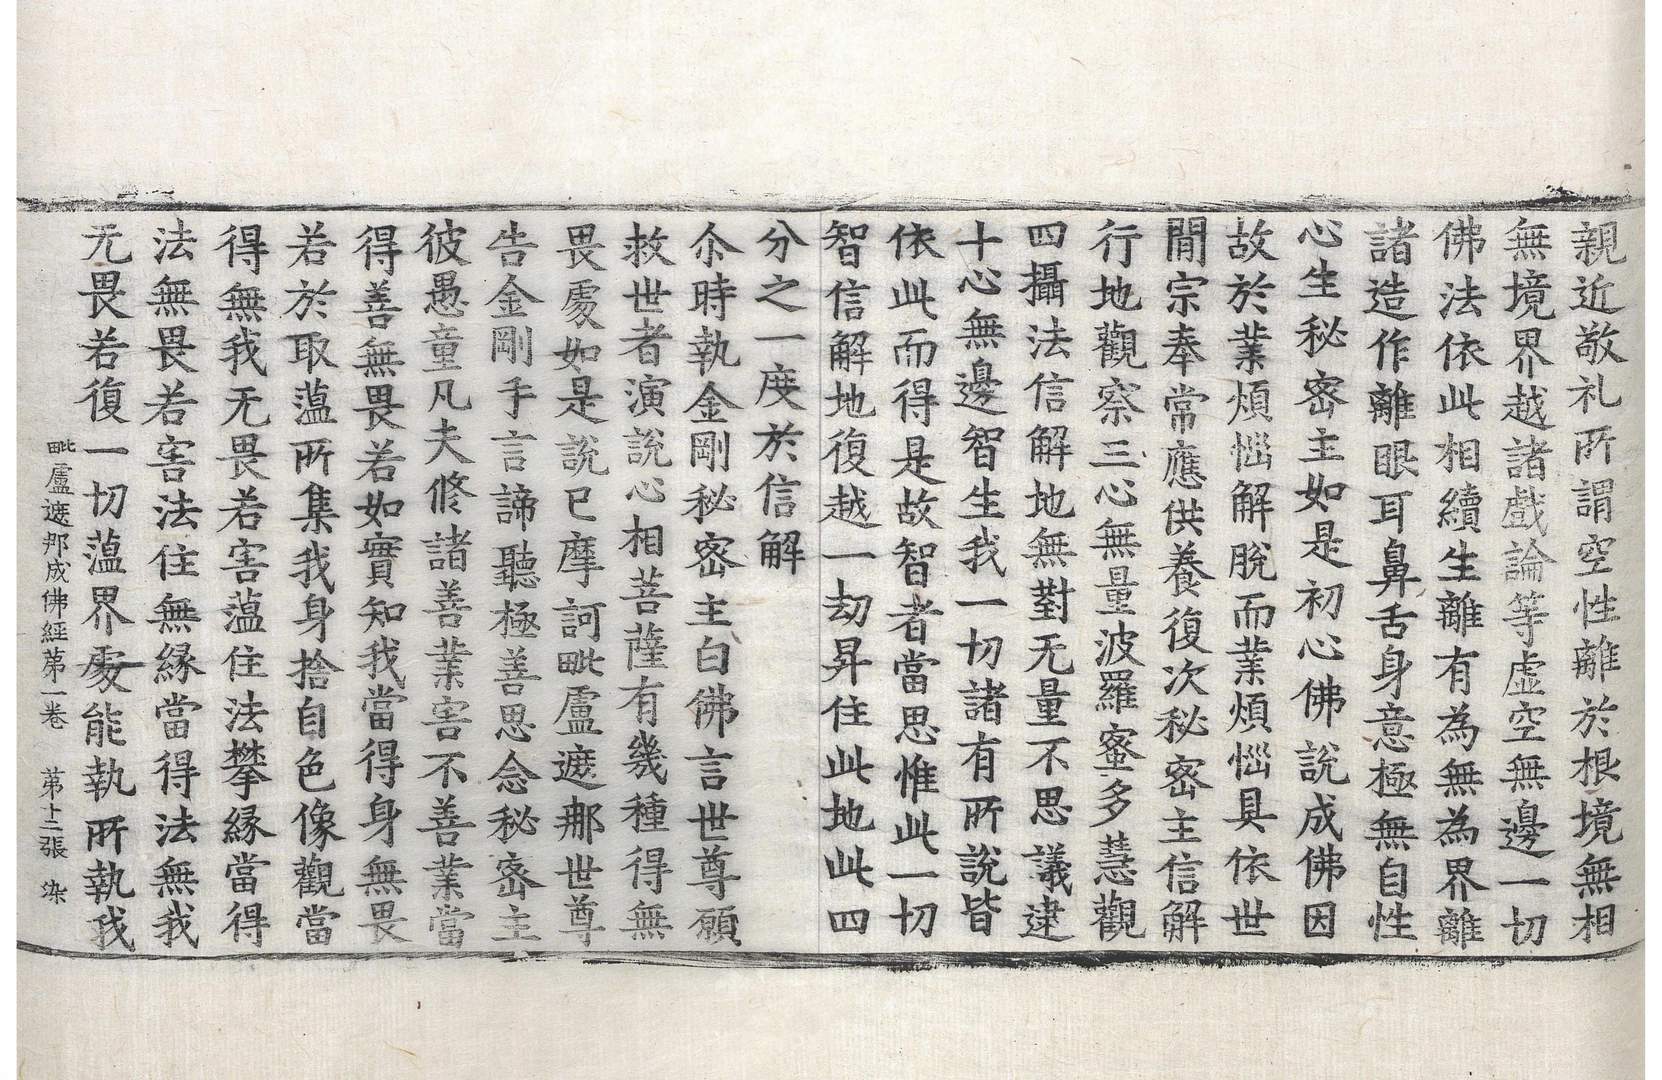 親近敬礼所謂空性離於根境無相
無境界越諸戲論等虛空無邊一切
佛法依此相續生離有為無為界離
諸造作離眼耳鼻舌身意極無自性
心生秘密主如是初心佛說成佛因
故於業煩惱解脫而業煩惱具依世
間宗奉常應供養復次秘密主信解
行地觀察三心無量波羅蜜多慧觀
四攝法信解地無對无量不思議逮
十心無邊智生我一切諸有所說皆
依此而得是故智者當思惟此一切
智信解地復越一劫昇住此地此四
分之一度於信解
尒時執金剛秘密主白佛言世尊願
救世者演說心相菩薩有幾種得無
畏處如是說已摩訶毗盧遮那世尊
告金剛手言諦聽極善思念秘密主
彼愚童凡夫修諸善業害不善業當
得善無畏若如實知我當得身無畏
若於取薀所集我身捨自色像觀當
得無我无畏若害薀住法攀緣當得
法無畏若害法住無緣當得法無我
无畏若復一切薀界處能執所執我
毗盧遮那成佛經第一卷 第十二張 染